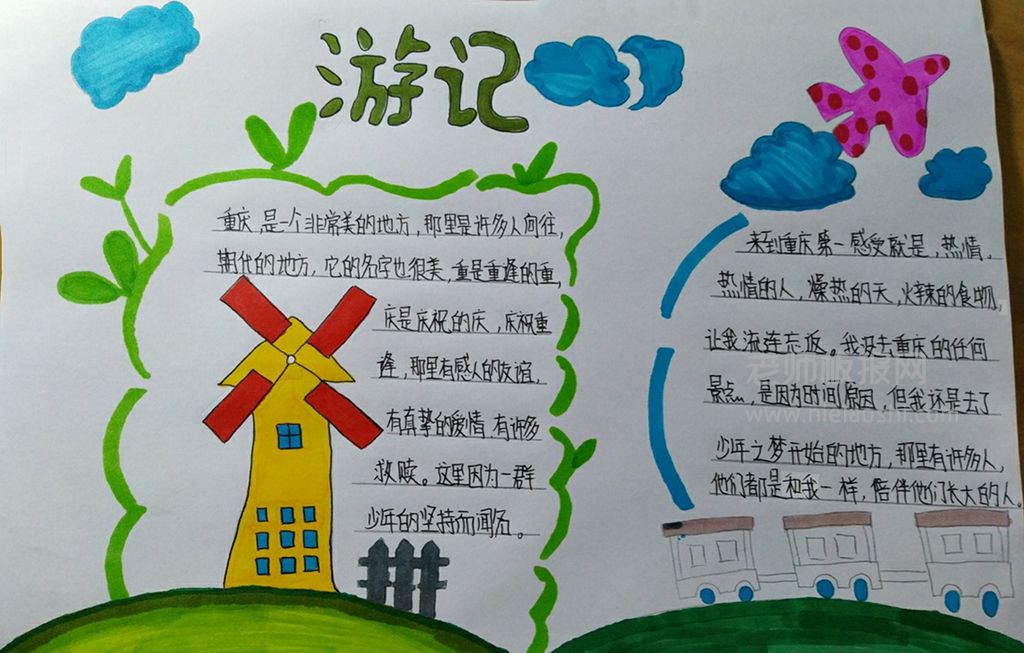 游记
重庆,是一个非常美的地方,那里是许多人向往,
期代的地方,它的名字也很美,重是重逢的重,
庆是庆祝的庆,庆祝重
逢,那里有感人的友谊,
有真挚的爱情,有许多
救赎。这里因为一群
少年的坚持而闻名。
来到重庆第一感受就是,热情,
热情的人,燥热的天,火辣的食物,
让我流连忘返。我没去重庆的任何
景点,是因为时间原因,但我还是去了
少年之梦开始的地方,那里有许多人,
他们都是和我一样,陪伴他们长大的人。
老师板报网